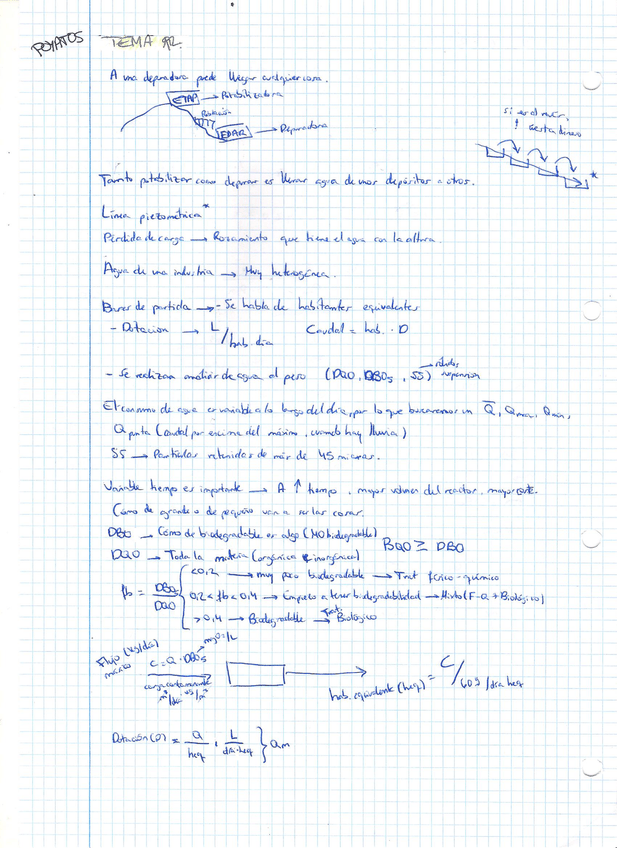 POYATOS TEMA 92.
A una depuradora puede llegar cualquier cosa.
ETAP → Potabilizadora
Población
EDAR → Depuradora
si es al revés,
! Gasta dinero
*
Tanto potabilizar como depurar es llevar agua de unos depósitos a otros.
Línea piezométrica*
Pérdida de carga → Rozamiento que tiene el agua con la altura.
Agua de una industria → Muy heterogénea.
Bases de partida → - Se habla de habitantes equivalentes
- Dotación → L/hab.día Caudal = hab. · D
- Se realizan analísis de agua al peso (DQO, DBO5, SS) → sólidos suspensión
El consumo de agua es variable a lo largo del día, por lo que buscaremos un Q̅, Qmax, Qmin,
Q punta (caudal por encima del máximo, cuando hay lluvia)
SS → Partículas retenidas de más de 45 micras.
Variable tiempo es importante → A ↑ tiempo, mayor volumen del reactor, mayor coste.
Cómo de grande o de pequeño van a ser las cosas.
DBO → Cómo de biodegradable es algo (MO biodegradable)
DQO → Toda la materia (orgánica e inorgánica) DQO ≥ DBO
<0,2 → muy poco biodegradable → Trat físico-químico
fb = DBO5/DQO 0,2 < fb < 0,4 → Empieza a tener biodegradabilidad → Mixto (F-Q + Biológico)
>0,4 → Biodegradable → Trat. Biológico
Flujo (kg/día) mg O2/L
másico C = Q · DBO5
carga contaminante
m³/día · kg/m³
hab. equivalente (heq) = C/60g/día heq
Dotación (D) = Q/heq, L/día·heq } Qm